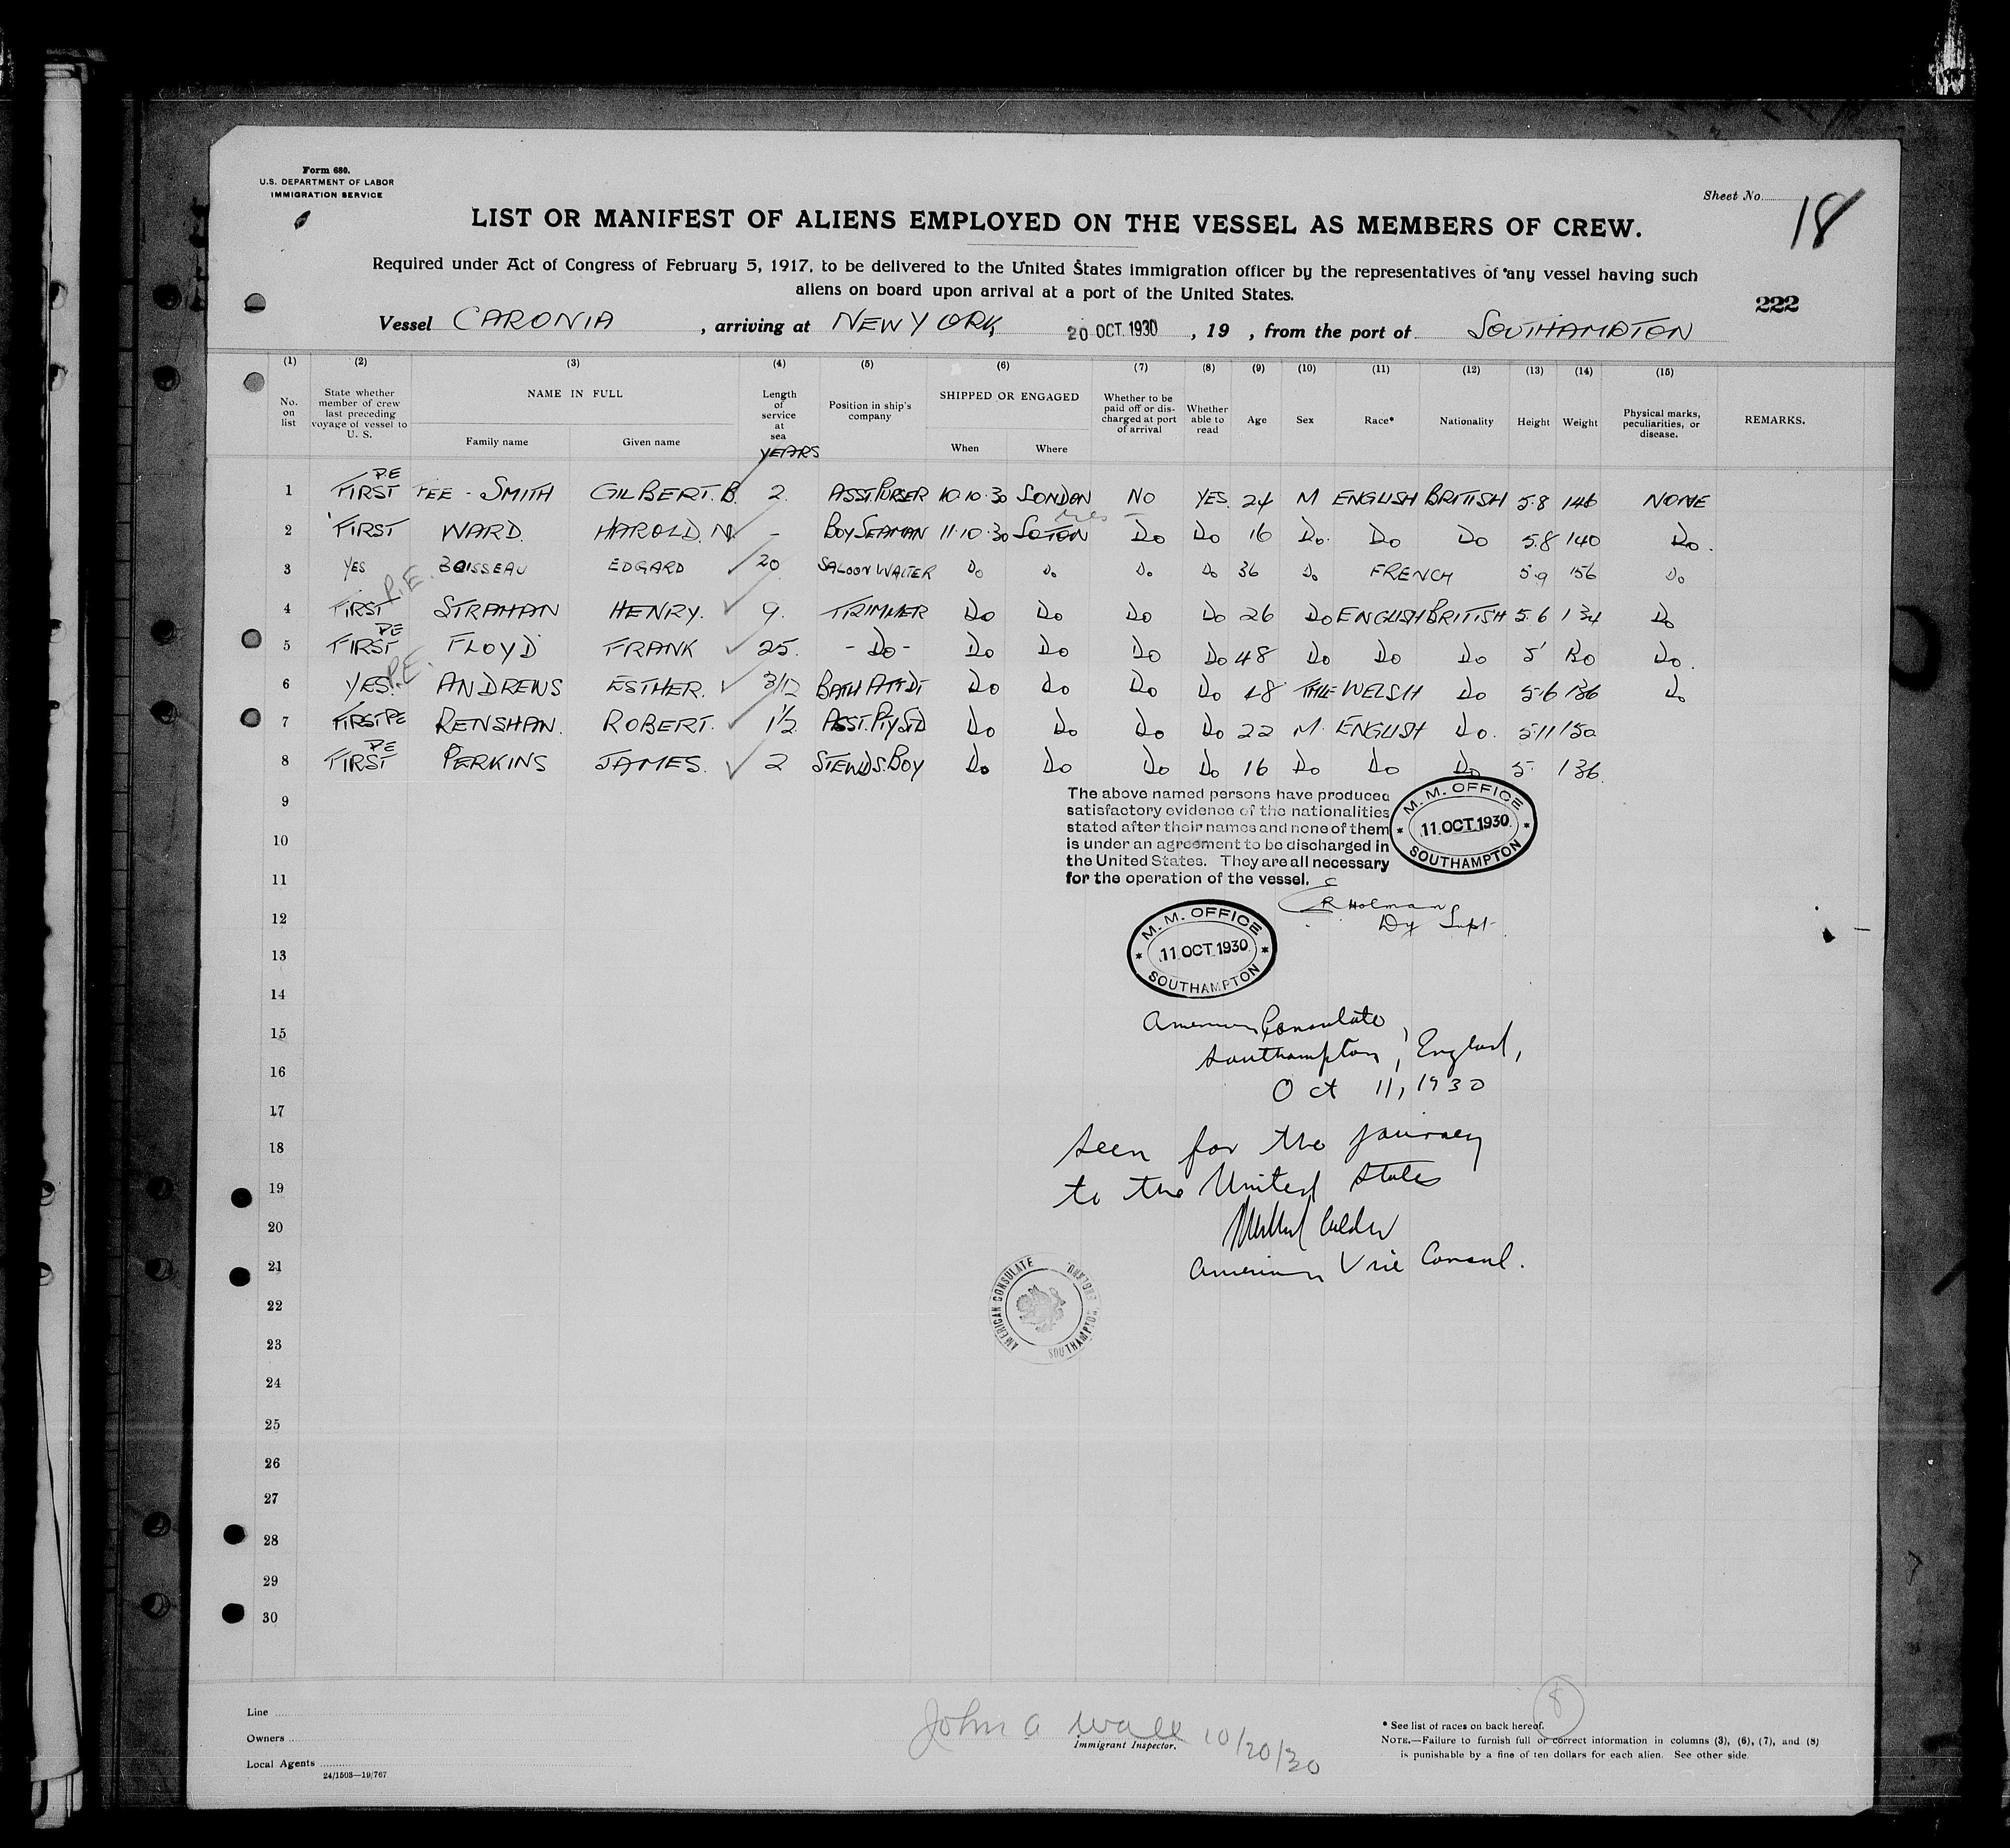 Form 680.
U.S. DEPARTMENT OF LABOR
IMMIGRATION SERVICE
Sheet No. 18
LIST OR MANIFEST OF ALIENS EMPLOYED ON THE VESSEL AS MEMBERS OF CREW.
Required under Act of Congress of February 5, 1917, to be delivered to the United States immigration officer by the representatives of any vessel having such
aliens on board upon arrival at a port of the United States.
222
Vessel CARONIA, arriving at NEW YORK, 20 OCT. 1930, 19 , from the port of SOUTHAMPTON
(1) (2) (3) (4) (5) (6) (7) (8) (9) (10) (11) (12) (13) (14) (15)
No. on list State whether member of crew last preceding voyage of vessel to U. S. NAME IN FULL Family name Given name Length of service at sea YEARS Position in ship's company SHIPPED OR ENGAGED When Where Whether to be paid off or discharged at port of arrival Whether able to read Age Sex Race* Nationality Height Weight Physical marks, peculiarities, or disease. REMARKS.
1 FIRST PE SMITH GILBERT. B. 2. ASST. PURSER 10.10.30 LONDON NO YES. 24 M ENGLISH BRITISH 5.8 146 NONE
2 FIRST WARD. HAROLD. N. - BOY SEAMAN 11.10.30 SOTON Do Do 16 Do. Do Do 5.8 140 Do.
3 YES BOISSEAU EDGARD 20 SALOON WAITER Do Do Do Do 36 Do FRENCH 5.9 156 Do
4 FIRST P.E. STRAHAN HENRY. 9. TRIMMER Do Do Do Do 26 Do ENGLISH BRITISH 5.6 134 Do
5 FIRST PE FLOYD FRANK 25. - Do - Do Do Do Do 48 Do Do Do 5' Do.
6 YES. P.E. ANDREWS ESTHER. 3/12 BATH ATTDT Do Do Do Do 48 WELSH Do 5.6 136 Do
7 FIRST PE RENSHAN. ROBERT. 1½ ASST. PTY STD Do Do Do Do 22 M. ENGLISH Do. 5.11 150
8 FIRST PE PERKINS JAMES. 2 STEWDS. BOY Do Do Do Do 16 Do Do Do 5. 136.
9
10
11
12
13
14
15
16
17
18
19
20
21
22
23
24
25
26
27
28
29
30
The above named persons have produced
satisfactory evidence of the nationalities
stated after their names and none of them
is under an agreement to be discharged in
the United States. They are all necessary
for the operation of the vessel.
M. M. OFFICE
11.OCT.1930
SOUTHAMPTON
Holman
Dy Supt.
M. M. OFFICE
11.OCT.1930
SOUTHAMPTON
American Consulate,
Southampton, England,
Oct 11, 1930
Seen for the journey
to the United States
American Vice Consul.
AMERICAN CONSULATE
SOUTHAMPTON, ENGLAND.
Line
Owners
Local Agents
24/1503—19/767
John A Wall 10/20/30
Immigrant Inspector.
8
* See list of races on back hereof.
NOTE.—Failure to furnish full or correct information in columns (3), (6), (7), and (8)
is punishable by a fine of ten dollars for each alien. See other side.